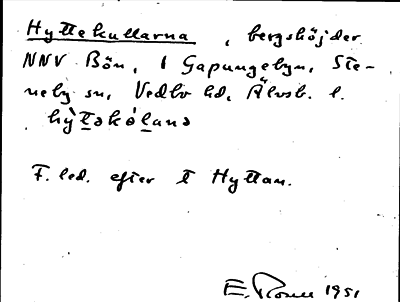 Hyttekullarna, bergshöjder
NNV Bön, i Gapungebyn, Ste-
neby sn, Vedbo hd, Älvsb. l.
hỳt̲əkól̲anə
F. led. efter t Hyttan.
E. 1951